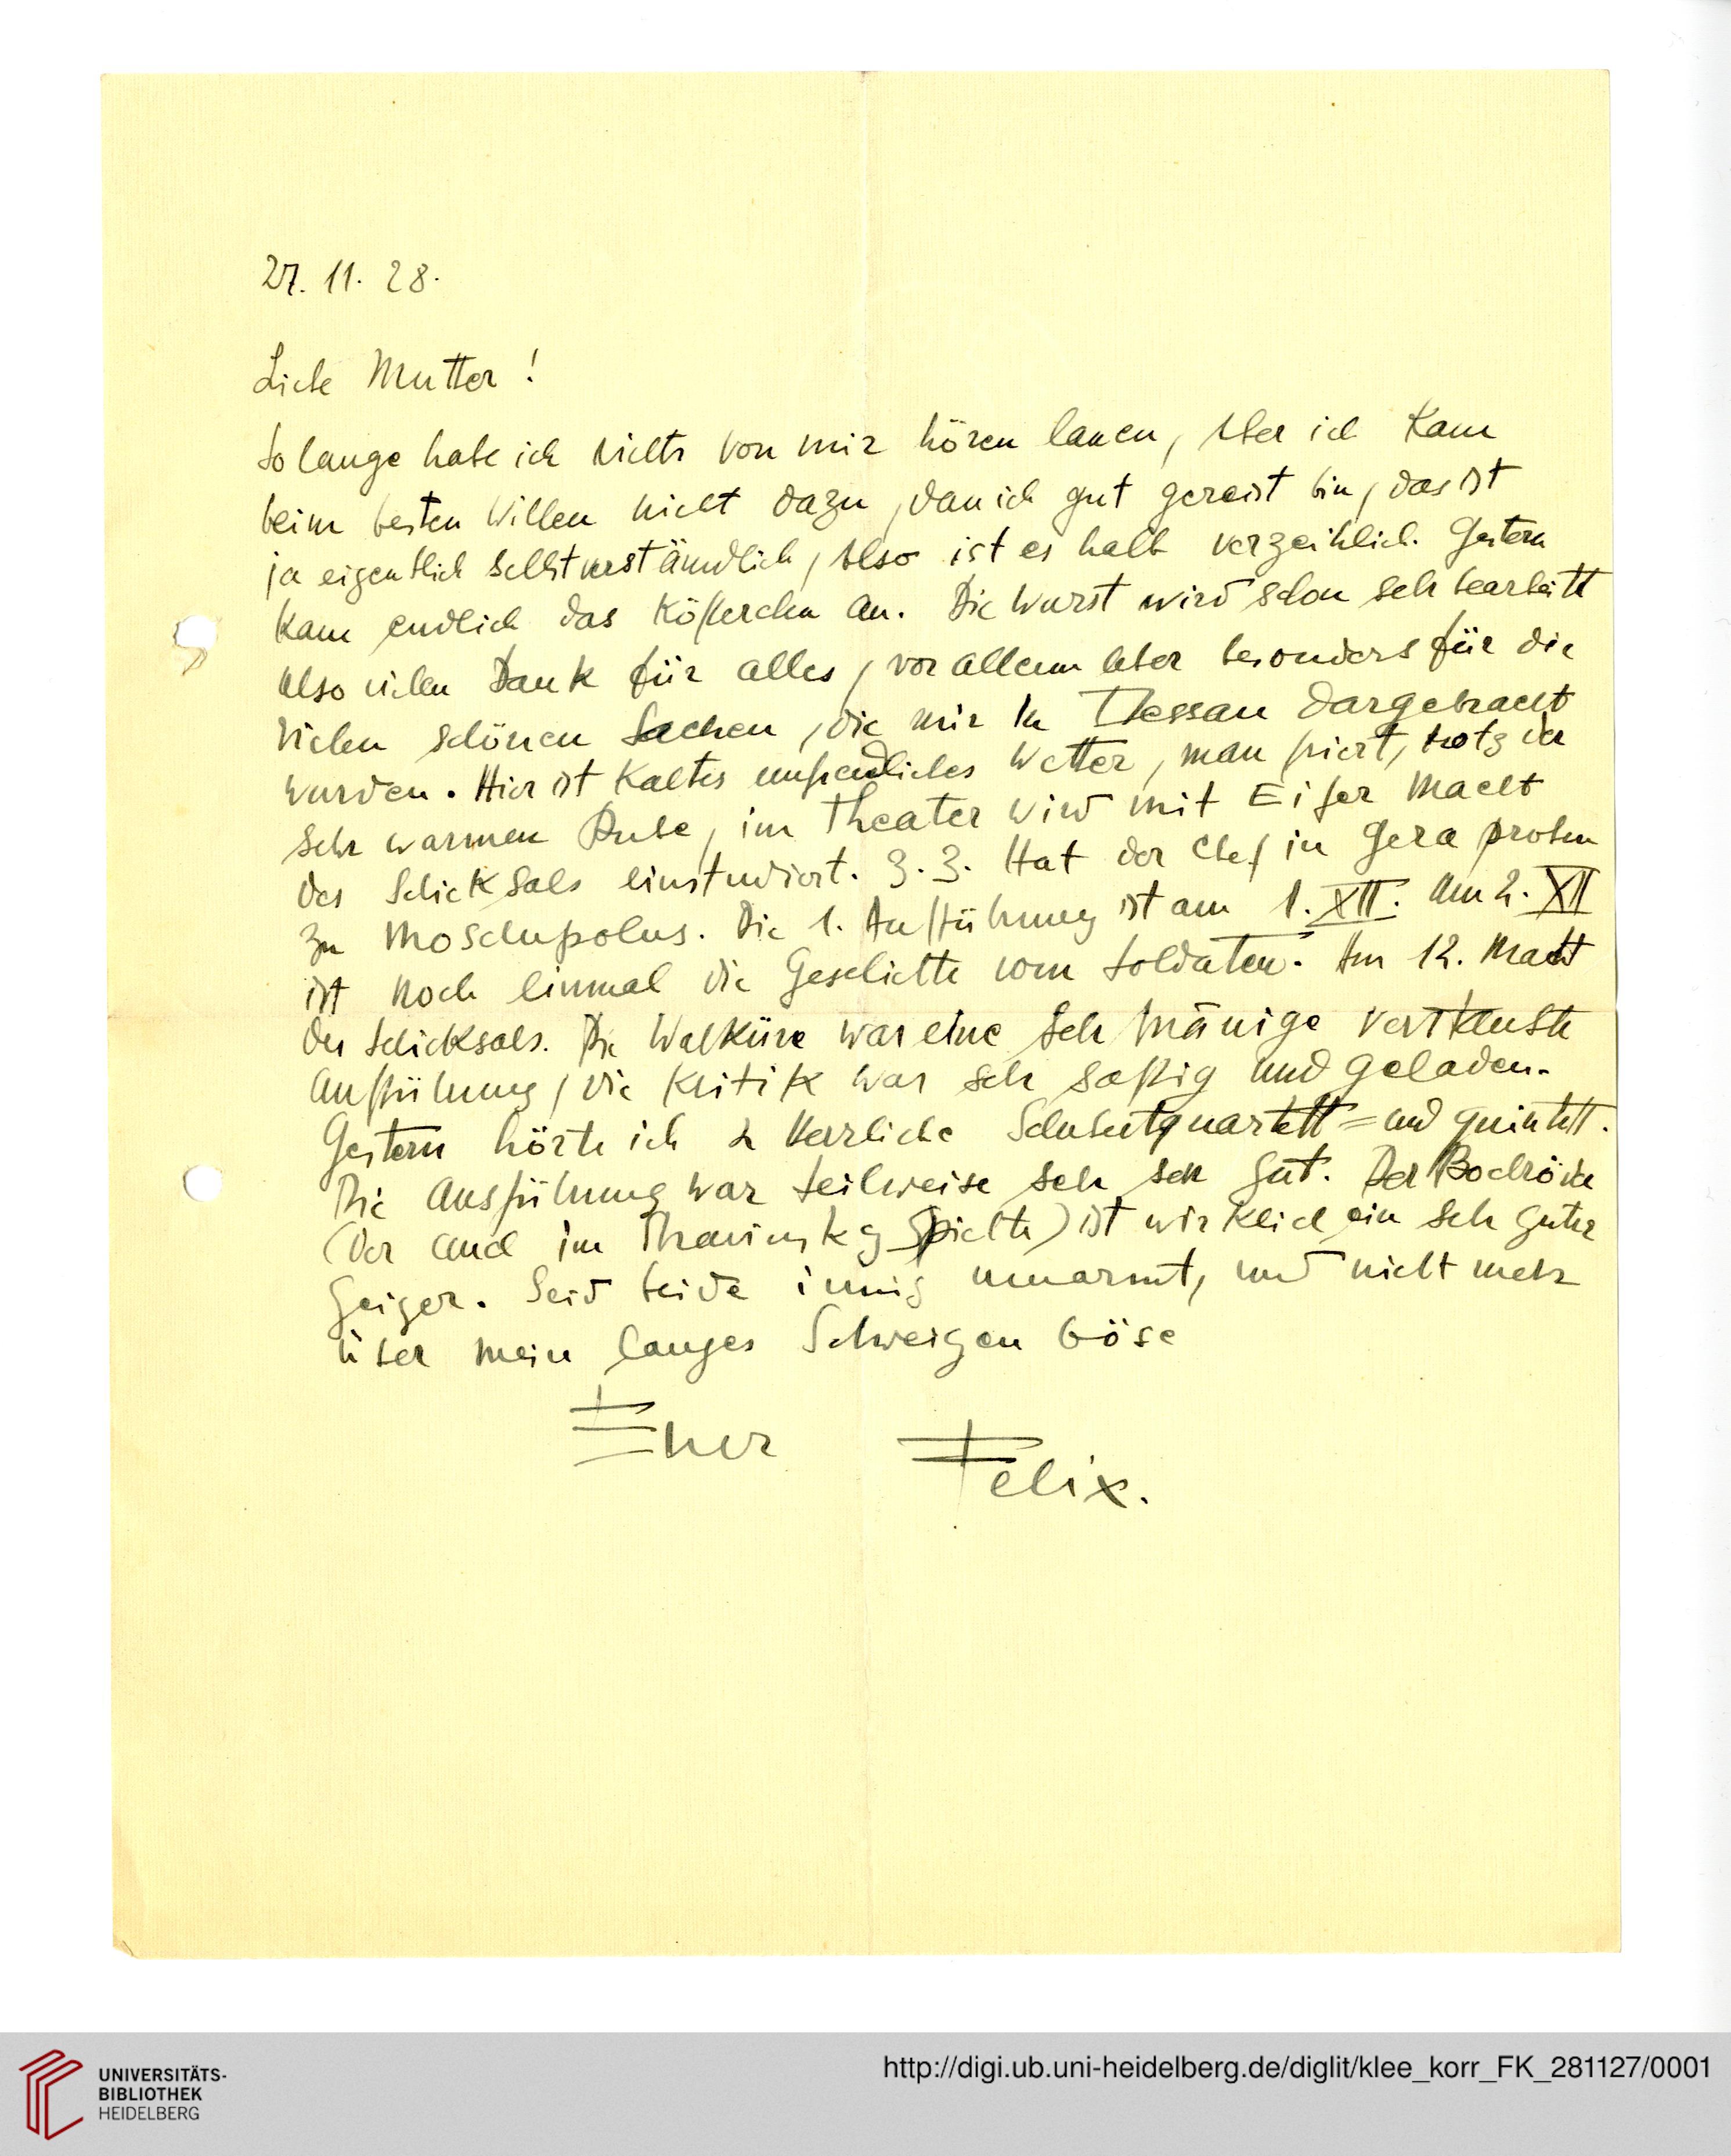 27. 11. 28.
Liebe Mutter!
So lange habe ich nichts von mir hören lassen, Aber ich kam
beim besten Willen nicht dazu, dass ich gut gereist bin, das ist
ja eigentlich selbstverständlich, Also ist es halb verzeihlich. Gestern
kam endlich das Köfferchen an. Die Wurst wird schon sehr bearbeitet
Also vielen Dank für alles, vor allem aber besonders für die
vielen schönen Sachen, die mir in Dessau dargebracht
wurden. Hier ist kaltes unfreundliches Wetter, man friert, trotz der
sehr warmen Bude, im Theater wird mit Eifer Macht
des Schicksals einstudiert. Z. Z. Hat der Chef in Gera proben
zu Moschopolus. Die 1. Aufführung ist am 1. XII. Am 2. XII
ist noch einmal die Geschichte vom Soldaten. Am 12. Macht
des Schicksals. Die Walküre war eine sehr mässige
Aufführung, die Kritik war sehr saftig und geladen.
Gestern hörte ich 2 herrliche Schubertquartett= und quintett.
Die Ausführung war teilweise sehr sehr gut. Der
(der auch im spielte) ist wirklich ein sehr guter
Geiger. Seid beide innig umarmt, und nicht mehr
über mein langes Schweigen böse
Euer Felix.
UNIVERSITÄTS-
BIBLIOTHEK
HEIDELBERG
http://digi.ub.uni-heidelberg.de/diglit/klee_korr_FK_281127/0001